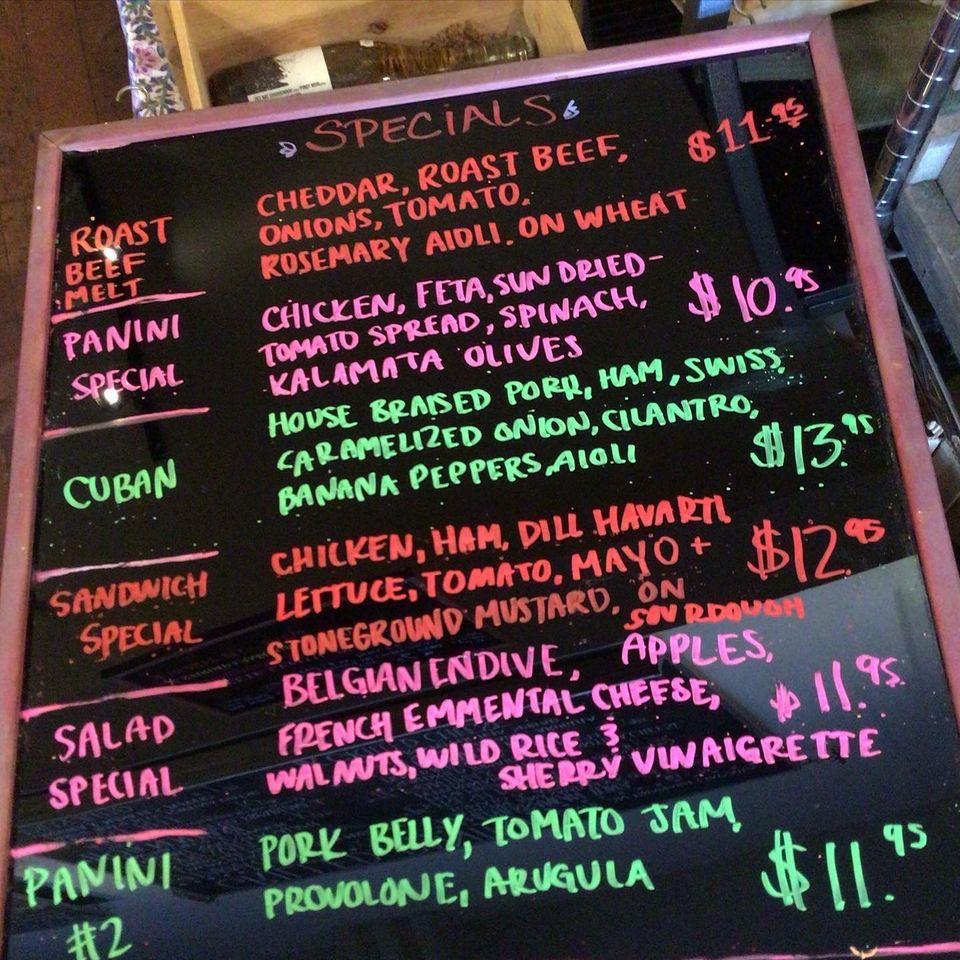 SPECIALS
ROAST BEEF MELT
CHEDDAR, ROAST BEEF,
ONIONS, TOMATO.
ROSEMARY AIOLI. ON WHEAT
$11.95
PANINI SPECIAL
CHICKEN, FETA, SUN DRIED-
TOMATO SPREAD, SPINACH,
KALAMATA OLIVES
$10.95
CUBAN
HOUSE BRAISED PORK, HAM, SWISS,
CARAMELIZED ONION, CILANTRO,
BANANA PEPPERS, AIOLI
$13.95
SANDWICH SPECIAL
CHICKEN, HAM, DILL HAVARTI,
LETTUCE, TOMATO, MAYO +
STONEGROUND MUSTARD. ON
SOURDOUGH
$12.95
SALAD SPECIAL
BELGIAN ENDIVE, APPLES,
FRENCH EMMENTAL CHEESE,
WALNUTS, WILD RICE &
SHERRY VINAIGRETTE
$11.95
PANINI #2
PORK BELLY, TOMATO JAM,
PROVOLONE, ARUGULA
$11.95